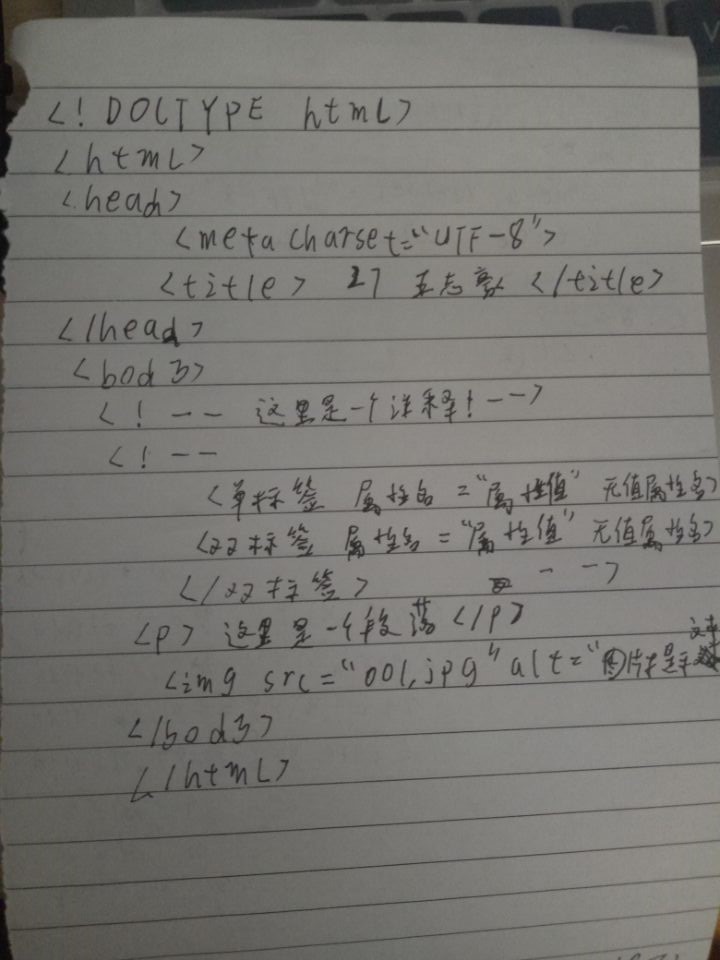 <!DOCTYPE html>
<html>
<head>
<meta charset="UTF-8">
<title> 27 王志豪 </title>
</head>
<body>
<!-- 这里是一个注释! -->
<!--
<单标签 属性名="属性值" 无值属性名>
<双标签 属性名="属性值" 无值属性名>
</双标签> -->
<p> 这里是一个段落 </p>
<img src="001.jpg" alt="图片提示文本
</body>
</html>